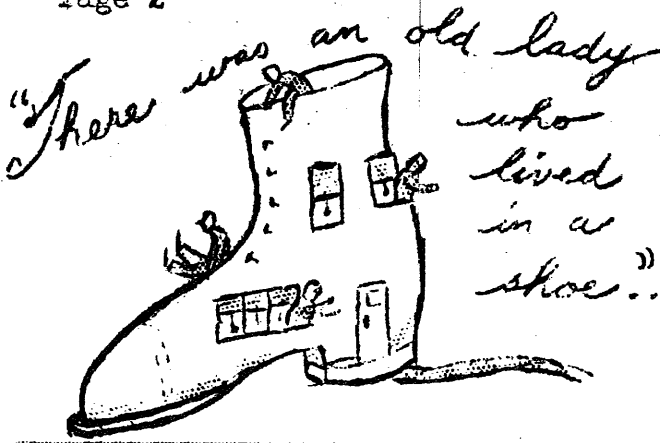 Page 2
"There was an old lady
who
lived
in a
shoe.."